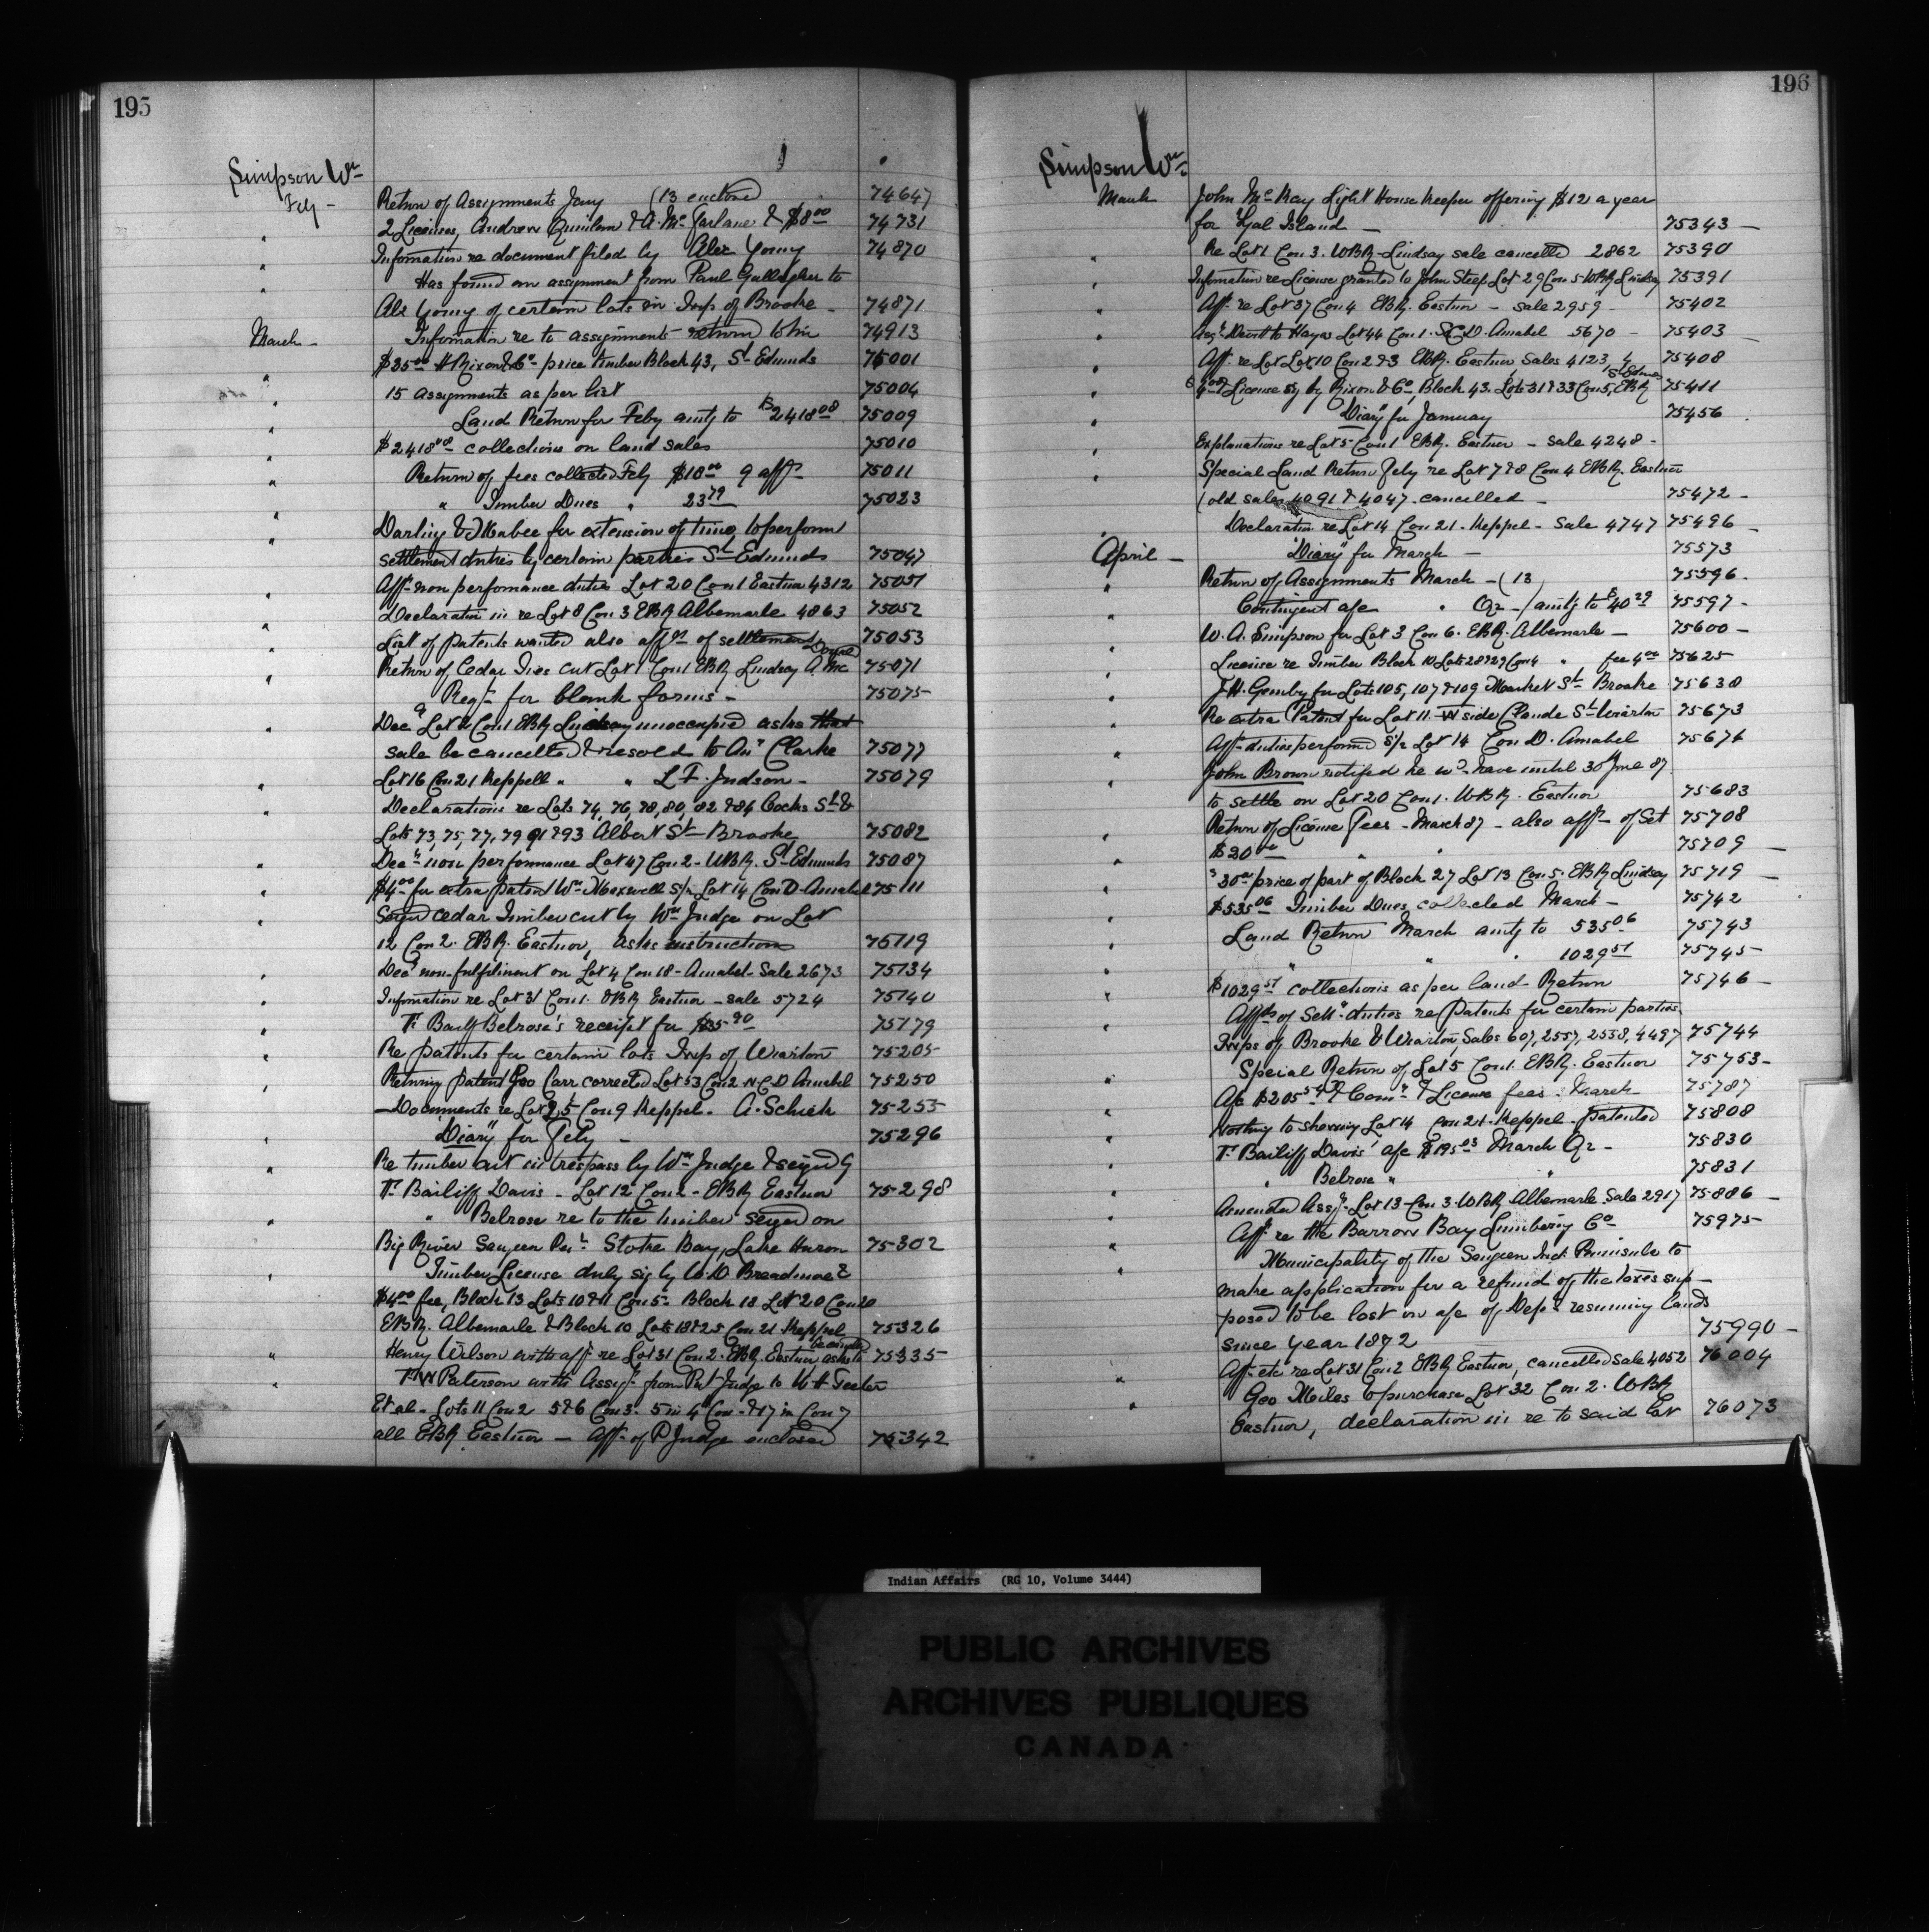 195
Simpson Wm
Feby - Return of Assignments Jany (13 enclosed) 74647
" 2 Licenses, Andrew Quinlan & A. McFarlane & $8.00 74731
" Information re document filed by Alex Young 74870
" Has found an assignment from Paul Gallagher to
Alx Young of certain lots in Twp of Brooke - 74871
March - Information re to assignments returned to him 74913
" $35.00 H Rixon & Co - price timber Block 43, St Edmunds 75001
" 15 assignments as per list 75004
" Land Return for Feby amtg to $2418.08 75009
" $2418.08 collections on land sales 75010
" Return of fees collected Feby $18.00 9 affts 75011
" " Timber Dues " 23.79 75023
" Darling & Mabee for extension of time, to perform
settlement duties by certain parties St Edmunds 75047
" Afft non performance duties Lot 20 Con 1 Eastnor 4312 75051
" Declaration in re Lot 8 Con 3 EBR Albemarle 4863 75052
" List of patents wanted also affts of settlement 75053
" Return of Cedar Ties cut Lot 1 Con 1 EBR Lindsay A. Mc 75071
" Reqn for blank forms - 75075
" Dec Lot 2 Con 1 EBR Lindsay unoccupied asks that
sale be cancelled & resold to An Clarke 75077
" Lot 16 Con 21 Keppell " " L F. Judson - 75079
" Declarations re Lots 74, 76, 78, 80, 82 & 84 Cocks St &
Lots 73, 75, 77, 79 91 & 93 Albert St Brooke 75082
" Decn non performance Lot 47 Con 2 - WBR. St Edmunds 75087
" $4.00 for extra patent Wm Maxwell S/2 Lot 14 Con D. Amabel 75111
" Seized cedar Timber cut by Wm Judge on Lot
12 Con 2. EBR. Eastnor, asks instructions 75119
" Decn non-fulfilment on Lot 4 Con 18 - Amabel - Sale 2673 75134
" Information re Lot 31 Con 1. EBR Eastnor - sale 5724 75140
" Tr Bailf Belrose's receipt for $35.90 75179
" Re patents for certain lots Twp of Wiarton 75205
" Returning patent Geo Carr corrected Lot 53 Con 2 N C D Amabel 75250
- Documents re Lot 25 Con 9 Keppel. A. Schiek 75255
" "Diary" for Feby - 75296
" Re timber cut in trespass by Wm Judge & seized by
Tr. Bailiff Davis - Lot 12 Con 2 - EBR Eastnor 75298
" " Belrose re to the timber seized on
Big River Saugeen Pena Stoke Bay, Lake Huron 75302
" Timber License duly sig by W. D. Breadmore &
$4.00 fee, Block 13 Lots 10 & 11 Con 5. Block 18 Lot 20 Con 20
EBR. Albemarle & Block 10 Lots 18 & 25 Con 21 Keppel 75326
" Henry Wilson with aff re Lot 31 Con 2. EBR. Eastnor asks to be cancelled 75335
" T W Paterson with Assigt from Pat Judge to W H Teeter
Et al - Lots 11 Con 2 5 & 6 Con 3. 5 in 4 Con - & 17 in Con 7
all EBR Eastnor - Afft of P Judge enclosed 75342
196
Simpson Wm
March John McKay Light House Keeper offering $12 a year
for Gal Island - 75343 -
" Re Lot 1 Con 3. WBR - Lindsay sale cancelled 2862 75390
" Information re License granted to John Steep Lot 29 Con 5 WBR Lindsay 75391
" Aff. re Lot 37 Con 4 EBR. Eastnor - Sale 2959 - 75402
" Assg. Devitt to Hayes Lot 44 Con 1. SCD. Amabel 5670 - 75403 -
" Aff. re Lot Lot 10 Con 2 & 3 EBR. Eastnor, Sales 4123, 4 75408
" $4.00 & License sig by Rixon & Co. Block 43. Lots 31 & 33 Con 5, EBR St Edmds 75411
" "Diary" for January 75456
" Explanations re Lot 5 Con 1 EBR. Eastnor - Sale 4248 -
" Special Land Return Feby re Lot 7 & 8 Con 4 EBR Eastnor
(old sales 4091 & 4047 cancelled - 75472 -
" Declaration re Lot 14 Con 21 - Keppel - Sale 4747 75496 -
April - "Diary" for March - 75573
" Return of Assignments March - (13) 75596 -
" Contingent a/c " Qr - (amtg to $40.29 75597 -
" W. A. Simpson for Lot 3 Con 6. EBR. Albemarle - 75600 -
" License re Timber Block 10 Lots 28 & 29 Con 4 " fee 4.00 75625
" J. H. Gemby for Lots 105, 107 & 109 Market St Brooke 75638
" Re extra Patent for Lot 11. W side Claude St Wiarton 75673
" Afft duties performed S/2 Lot 14 Con D. Amabel 75676
" John Brown notified he wd have until 30th June 87
to settle on Lot 20 Con 1. WBR. Eastnor 75683
" Return of License Fees - March 87 - also afft of Set 75708
" $20.00 " " 75709 -
" $30.00 price of part of Block 27 Lot 13 Con 5. EBR Lindsay 75719 -
" $535.06 Timber Dues, collected March - 75742
" Land Return March amtg to 535.06 75743
" " " " 1029.51 75745 -
" $1029.51 collections as per land Return 75746 -
" Affts of Settt duties re Patents for certain parties
Twps of Brooke & Wiarton, Sales 607, 2557, 2558, 4497 75744
" Special Return of Lot 5 Con 1. EBR. Eastnor 75753 -
" A/c $205.54 & Comn & License fees. March 75787
" Nothing to showing Lot 14 Con 21 - Keppel - patented 75808
" Tr. Bailiff Davis' a/c $195.03 March Qr - 75830
" " Belrose " " 75831
" Amended Assgt. Lot 13 - Con 3. WBR Albemarle Sale 2917 75886 -
" Aff. re the Barrow Bay Lumbering Co 75975
" Municipality of the Saugeen Ind. Peninsula to
make application for a refund of the taxes sup-
posed to be lost on a/c of Dept resuming lands
since year 1872 75990 -
" Aff. etc re Lot 31 Con 2 EBR Eastnor, cancelled Sale 4052 76004
" Geo Miles to purchase Lot 32 Con 2. WBR
Eastnor, declaration in re to said Lot 76073
Indian Affairs (RG 10, Volume 3444)
PUBLIC ARCHIVES
ARCHIVES PUBLIQUES
CANADA